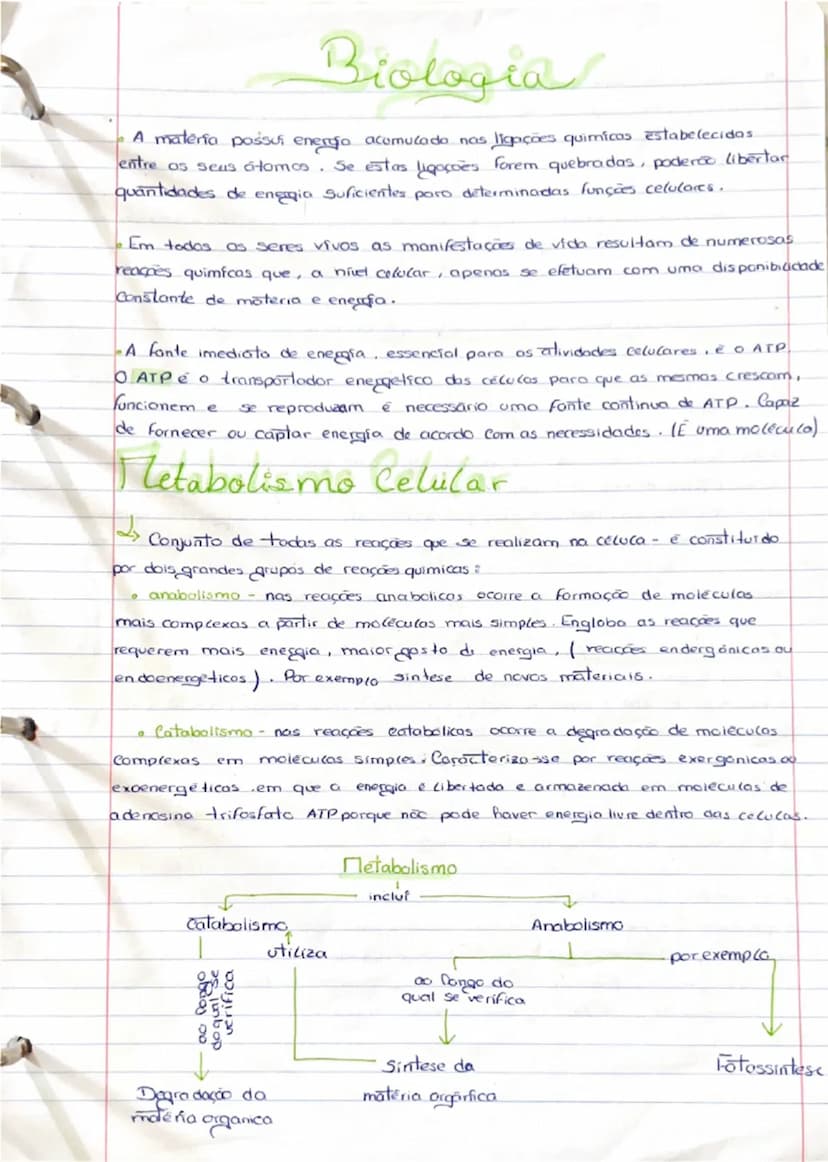 Biologia
• A matéria possui energia acumulada nas ligações químicas estabelecidas
entre os seus átomos. Se estas ligações forem quebradas, poderão libertar
quantidades de energia suficientes para determinadas funções celulares.
• Em todos os seres vivos as manifestações de vida resultam de numerosas
reações químicas que, a nível celular, apenas se efetuam com uma disponibilidade
constante de matéria e energia.
• A fonte imediata de energia, essencial para as atividades celulares, é o ATP.
O ATP é o transportador energético das células para que as mesmas cresçam,
funcionem e se reproduzam é necessário uma fonte contínua de ATP. Capaz
de fornecer ou captar energia de acordo com as necessidades. (É uma molécula)
Metabolismo Celular
↳ Conjunto de todas as reações que se realizam na célula - é constituído
por dois grandes grupos de reações químicas:
• anabolismo - nas reações anabólicas ocorre a formação de moléculas
mais complexas a partir de moléculas mais simples. Engloba as reações que
requerem mais energia, maior gasto de energia, (reações endergónicas ou
endoenergéticos). Por exemplo síntese de novos materiais.
• Catabolismo - nas reações catabólicas ocorre a degradação de moléculas
complexas em moléculas simples. Caracteriza-sse por reações exergónicas ou
exoenergéticas .em que a energia é libertada e armazenada em moléculas de
adenosina trifosfato ATP porque não pode haver energia livre dentro das células.
Metabolismo
inclui
Catabolismo Anabolismo
utiliza por exemplo
ao longo
do qual se
verifica
ao longo do
qual se verifica
Síntese da Fotossíntese
matéria orgânica
Degradação da
matéria organica